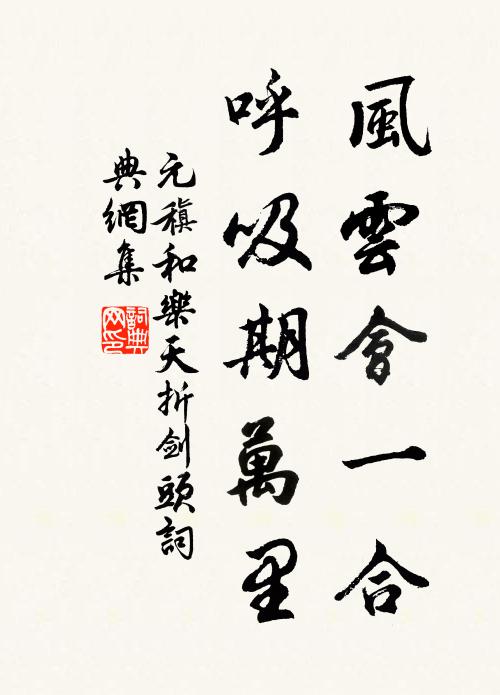 風雲會一合
呼吸期萬里
元稹和樂天折劍頭詞
典網集
詞典网印